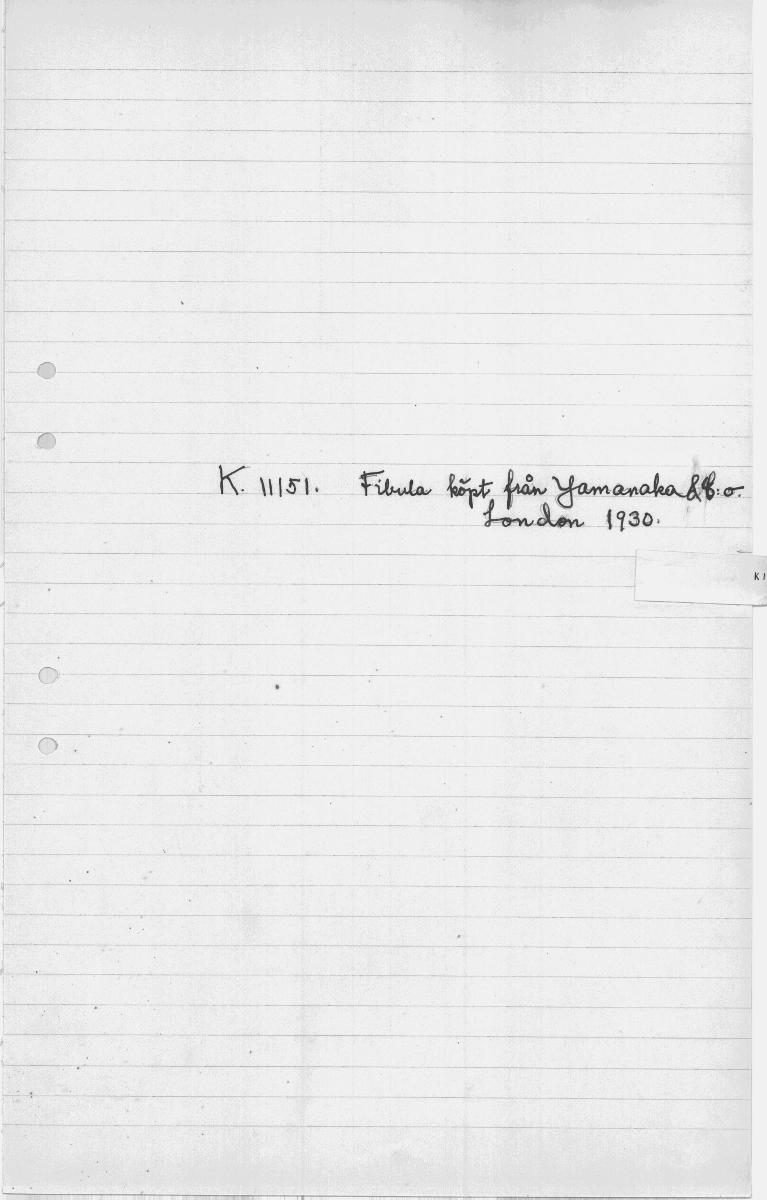 K. 11151. Fibula köpt från Yamanaka & C:o.
London 1930.
K 1